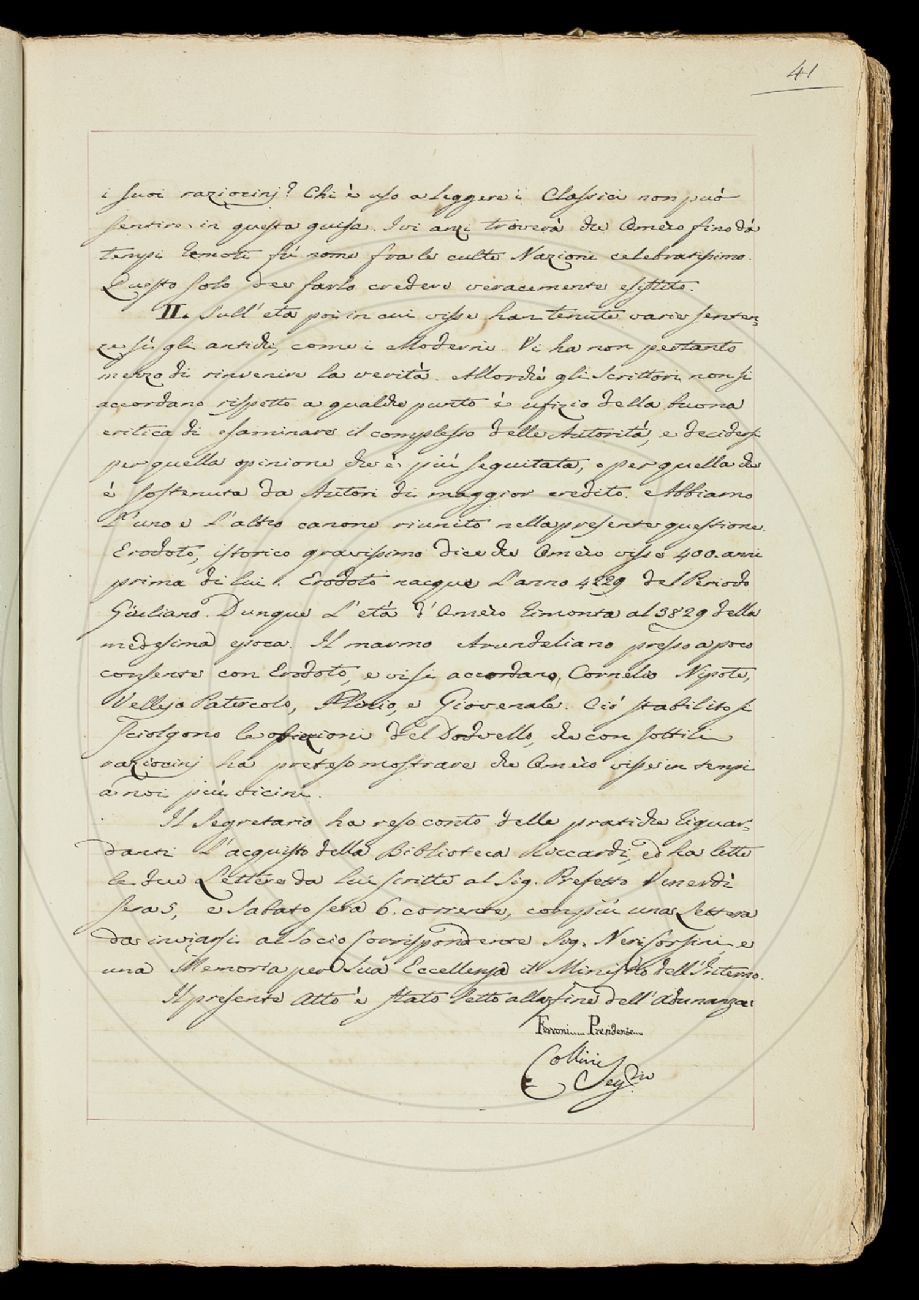 41
i suoi raziocinj? Chi è uso a leggere i Classici non può
sentire in questa guisa. Ivi anzi troverà che Omero fino da'
tempi remoti fù nome fralle culte Nazioni celebratissimo.
Questo solo dee farlo credere veracemente esistito.
II. Sull' età poi in cui visse han tenute varie senten=
ze sì gli antichi, come i Moderni. Vi ha non pertanto
mezzo di rinvenire la verità. Allorchè gli Scrittori non si
accordano rispetto a qualche punto è ufizio della buona
critica di esaminare il complesso delle Autorità, e decidersi
per quella opinione che è più seguitata, o per quella che
è sostenuta da Autori di maggior credito. Abbiamo
l'uno e l'altro canone riunito nella presente questione.
Erodoto, istorico gravissimo dice che Omero visse 400. anni
prima di lui. Erodoto nacque l'anno 4229 del Periodo
Giuliano. Dunque l'età d'Omero rimonta al 3829 della
medesima epoca. Il marmo Arundeliano presso a poco
consente con Erodoto, e vi si accordano, Cornelio Nipote,
Vellejo Patercolo, Plinio, e Giovenale. Ciò stabilito si
sciolgono le del Dodvello, che con sottili
raziocinj ha preteso mostrare che Omero visse in tempi
a noi più vicini.
Il Segretario ha reso conto delle pratiche riguar=
danti l'acquisto della Biblioteca Riccardi, ed ha lette
le due Lettere da lui scritte al Sig. Prefetto Venerdì
sera 5, e Sabato sera 6. corrente, con più una Lettera
da inviarsi al Socio Corrispondente Sig. Neri Corsini e
una Memoria per Sua Eccellenza il Ministro dell'Interno.
Il presente Atto è stato letto alla fine dell'Adunanza:
Ferroni Presidente
Collini Seg.rio